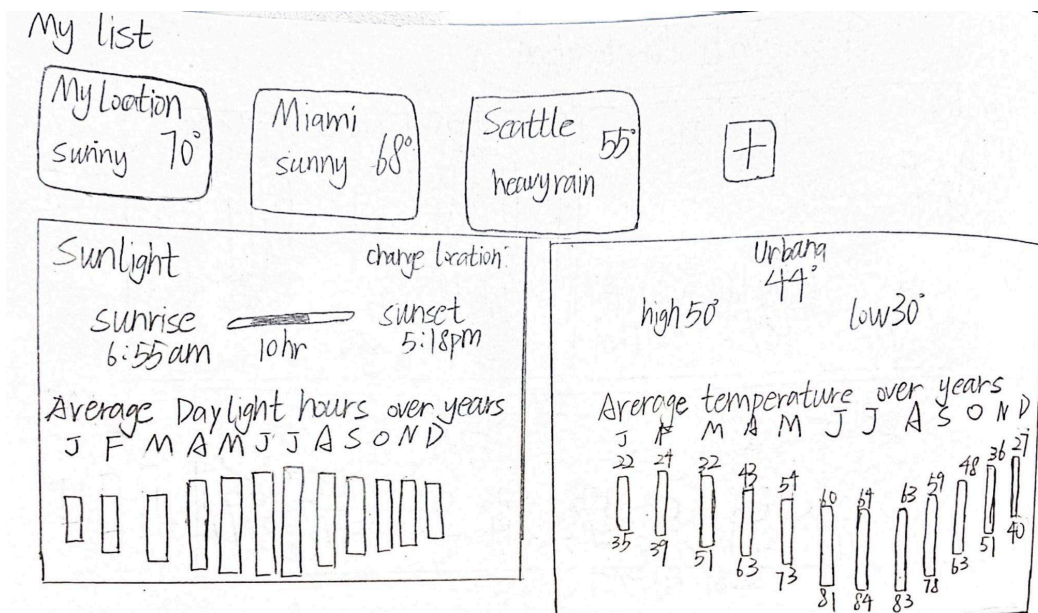 My list
My Location
sunny 70°
Miami
sunny 68°
Seattle
55°
heavy rain
+
Sunlight
change location
sunrise
6:55am
10hr
sunset
5:18pm
Average Daylight hours over years
J F M A M J J A S O N D
Urbana
44°
high 50°
low 30°
Average temperature over years
J F M A M J J A S O N D
22 24 32 43 54 60 64 63 59 48 36 27
35 39 51 63 73 81 84 83 78 63 51 40